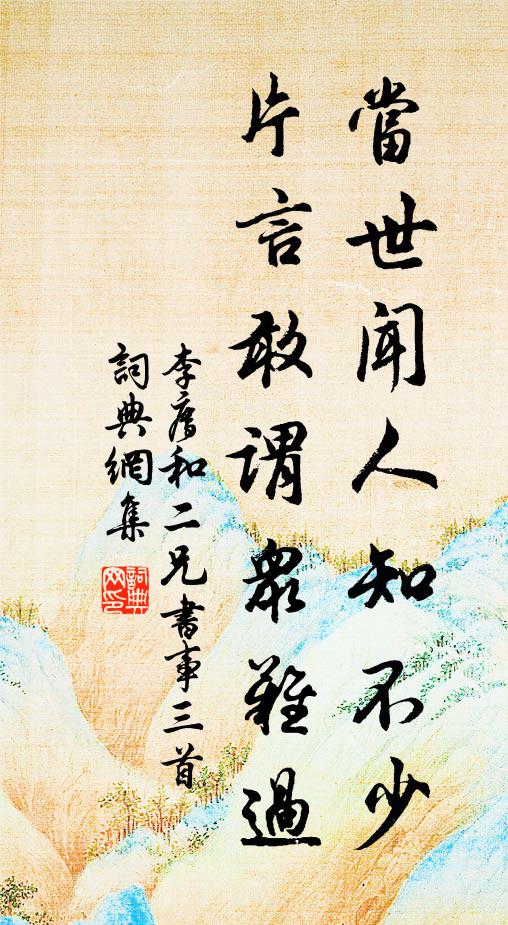 當世聞人知不少
片言敢謂衆難過
李廌和二兄書事三首
詞典網集
詞典
网印